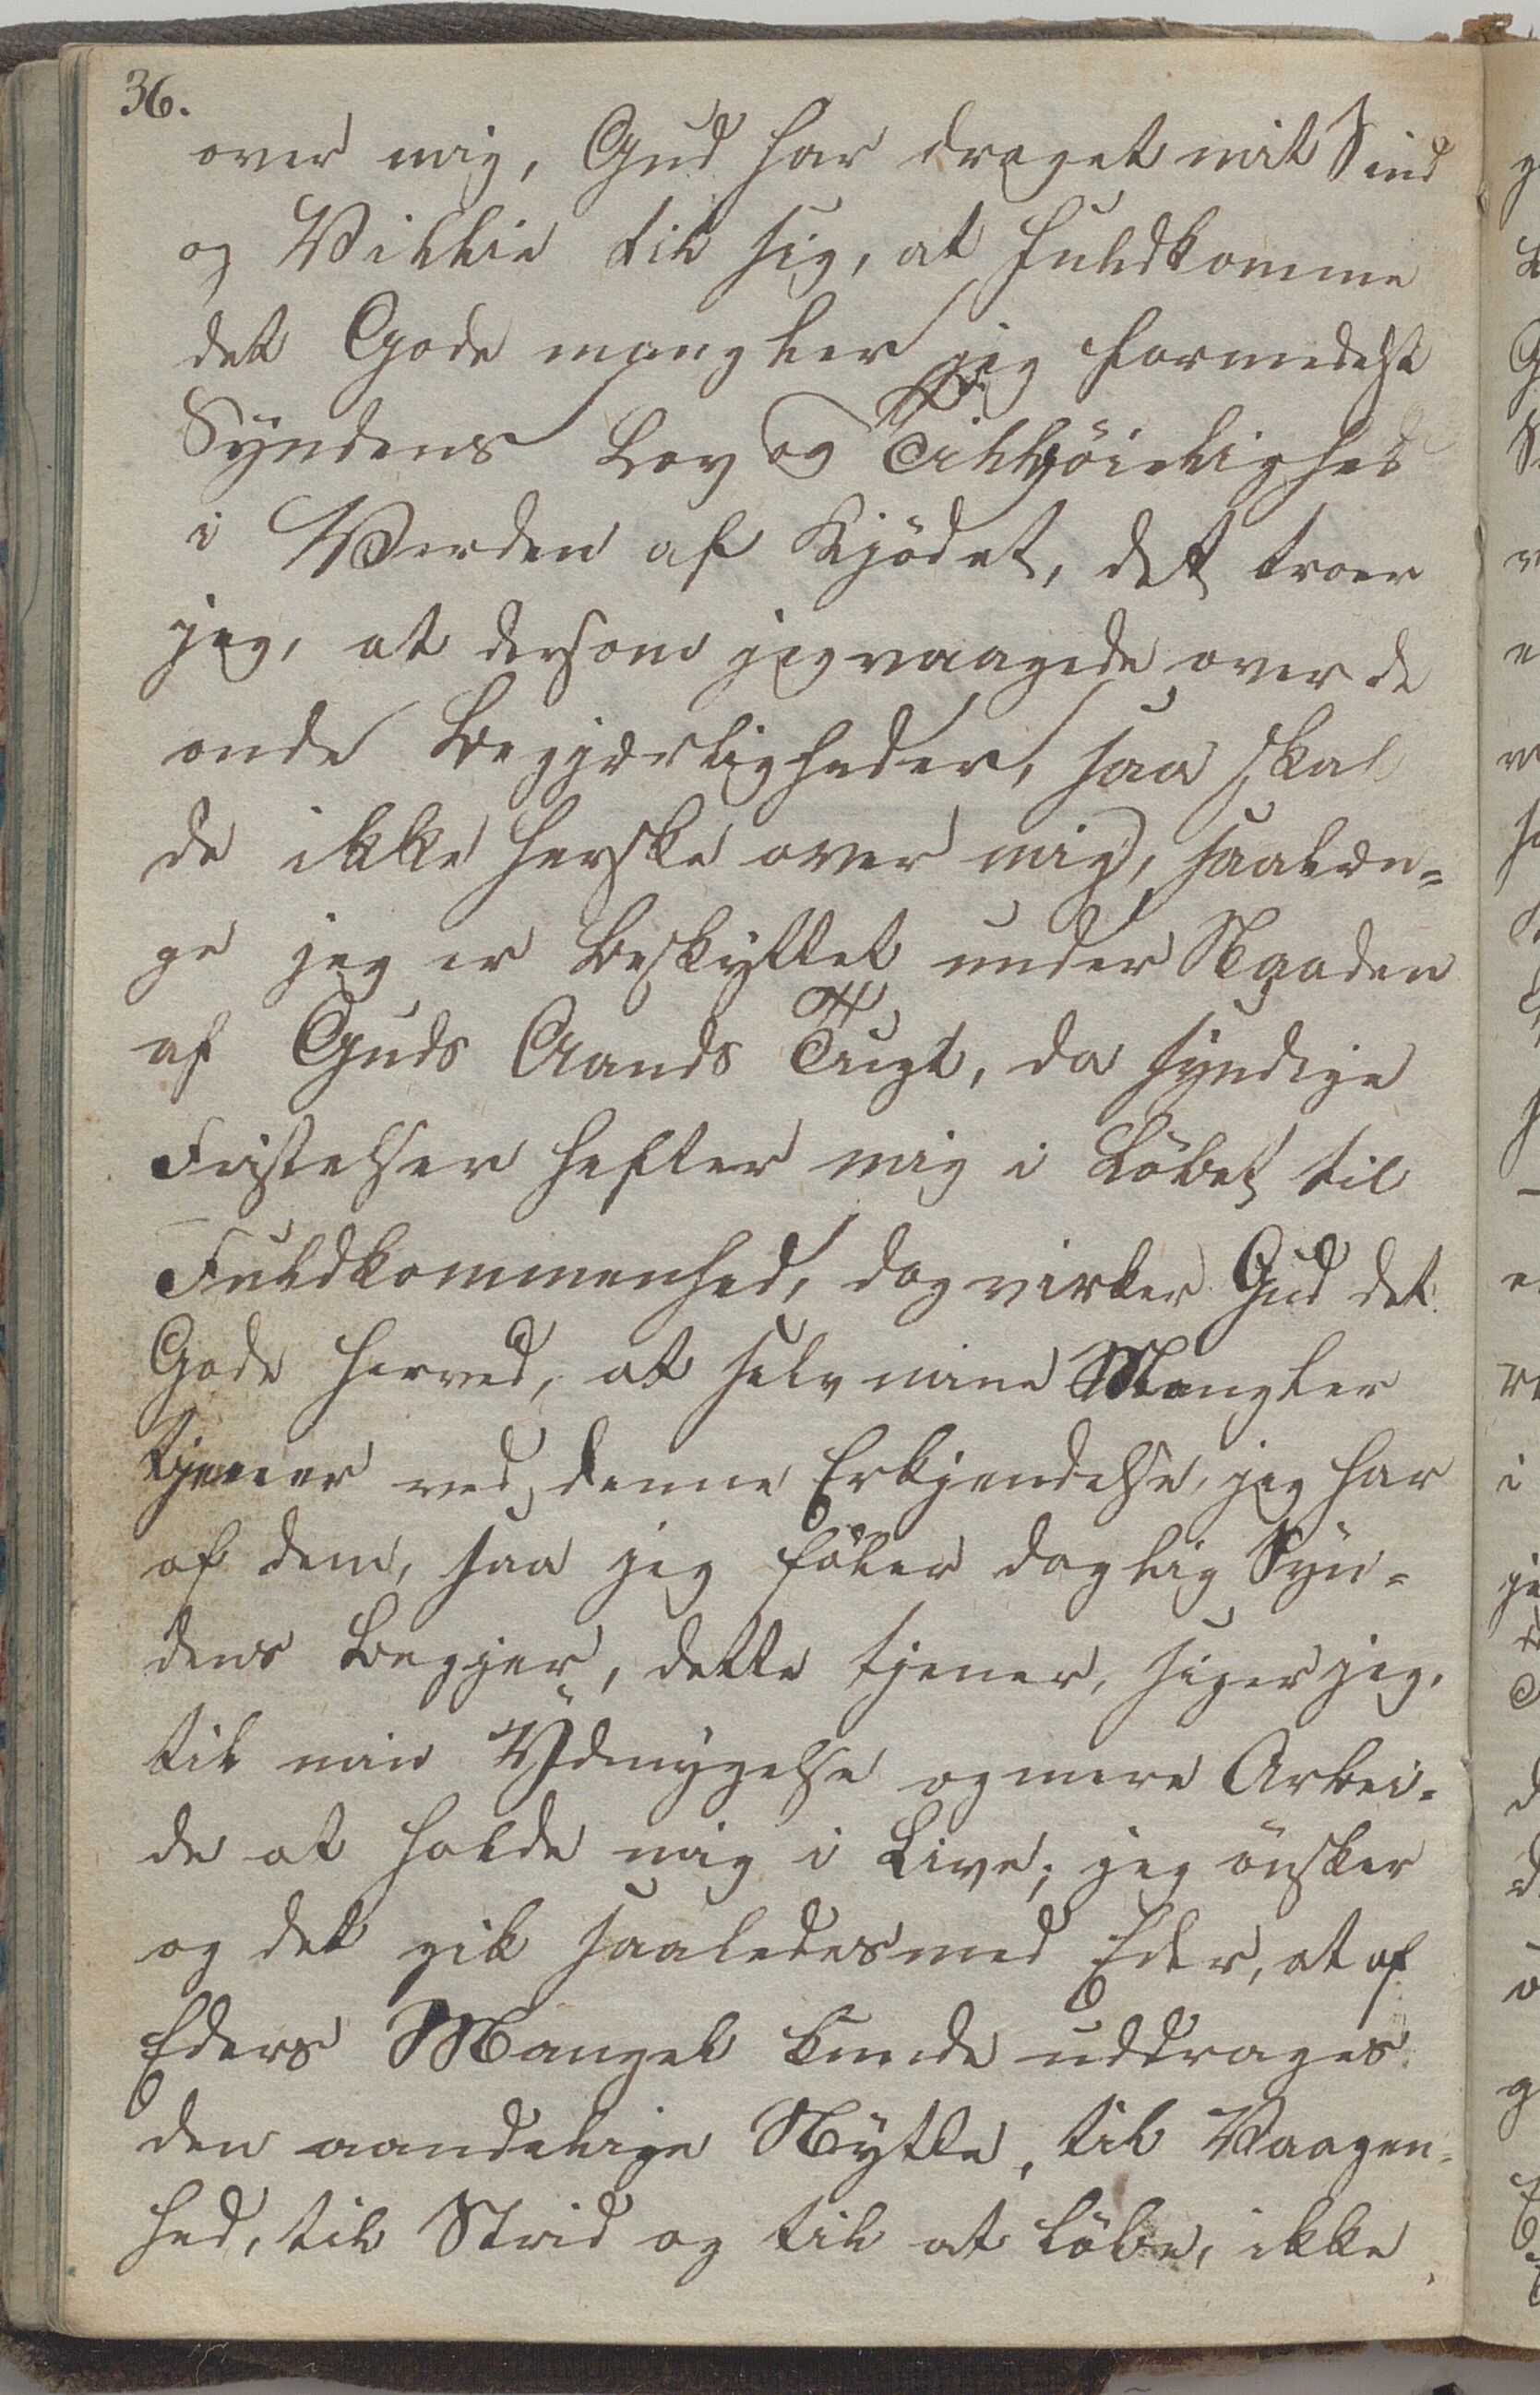 36.
over mig, Gud har draget mit Sind
og Villie til sig, at fuldkomme
det Gode mangler jeg formedelst
Syndens Lov og Tilbøielighed
i Verden af Kjödet, det troer
jeg, at dersom jeg vaagede over de
onde Begjærligheder, saa skal
de ikke herske over mig, saalæn=
ge jeg er beskyttet under Naaden
af Guds Aands Tugt, da syndige
Fristelser hefter mig i Löbet til
Fuldkommenhed, dog virker Gud det
Gode herved, at selv mine Mangler
tjener ved denne Erkjendelse, jeg har
af dem, saa jeg föler daglig Syn=
dens Begjer, dette tjener, siger jeg,
til min Ydmygelse og mere Arbei=
de at holde mig i Live; jeg önsker
og det gik saaledes med Eder, at af
Eders Mangel kunde uddrages
den aandelige Nytte, til Vaagen=
hed, til Strid og til at löbe, ikke